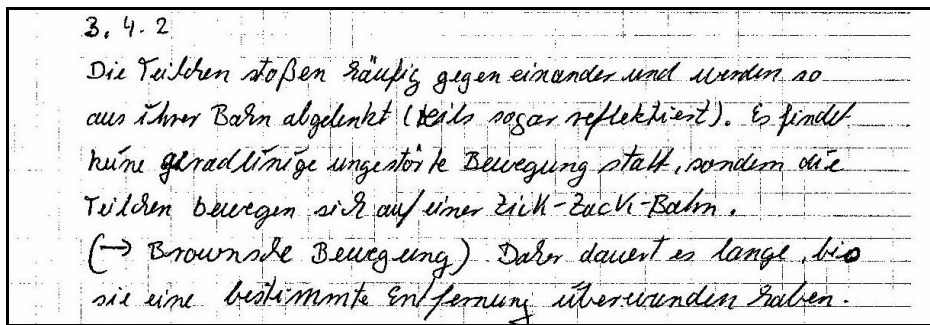 3.4.2
Die Teilchen stoßen häufig gegen einander und werden so
aus ihrer Bahn abgelenkt (teils sogar reflektiert). Es findet
keine geradlinige ungestörte Bewegung statt, sondern die
Teilchen bewegen sich auf einer Zick-Zack-Bahn.
(→ Brownsche Bewegung) Daher dauert es lange, bis
sie eine bestimmte Entfernung überwunden haben.